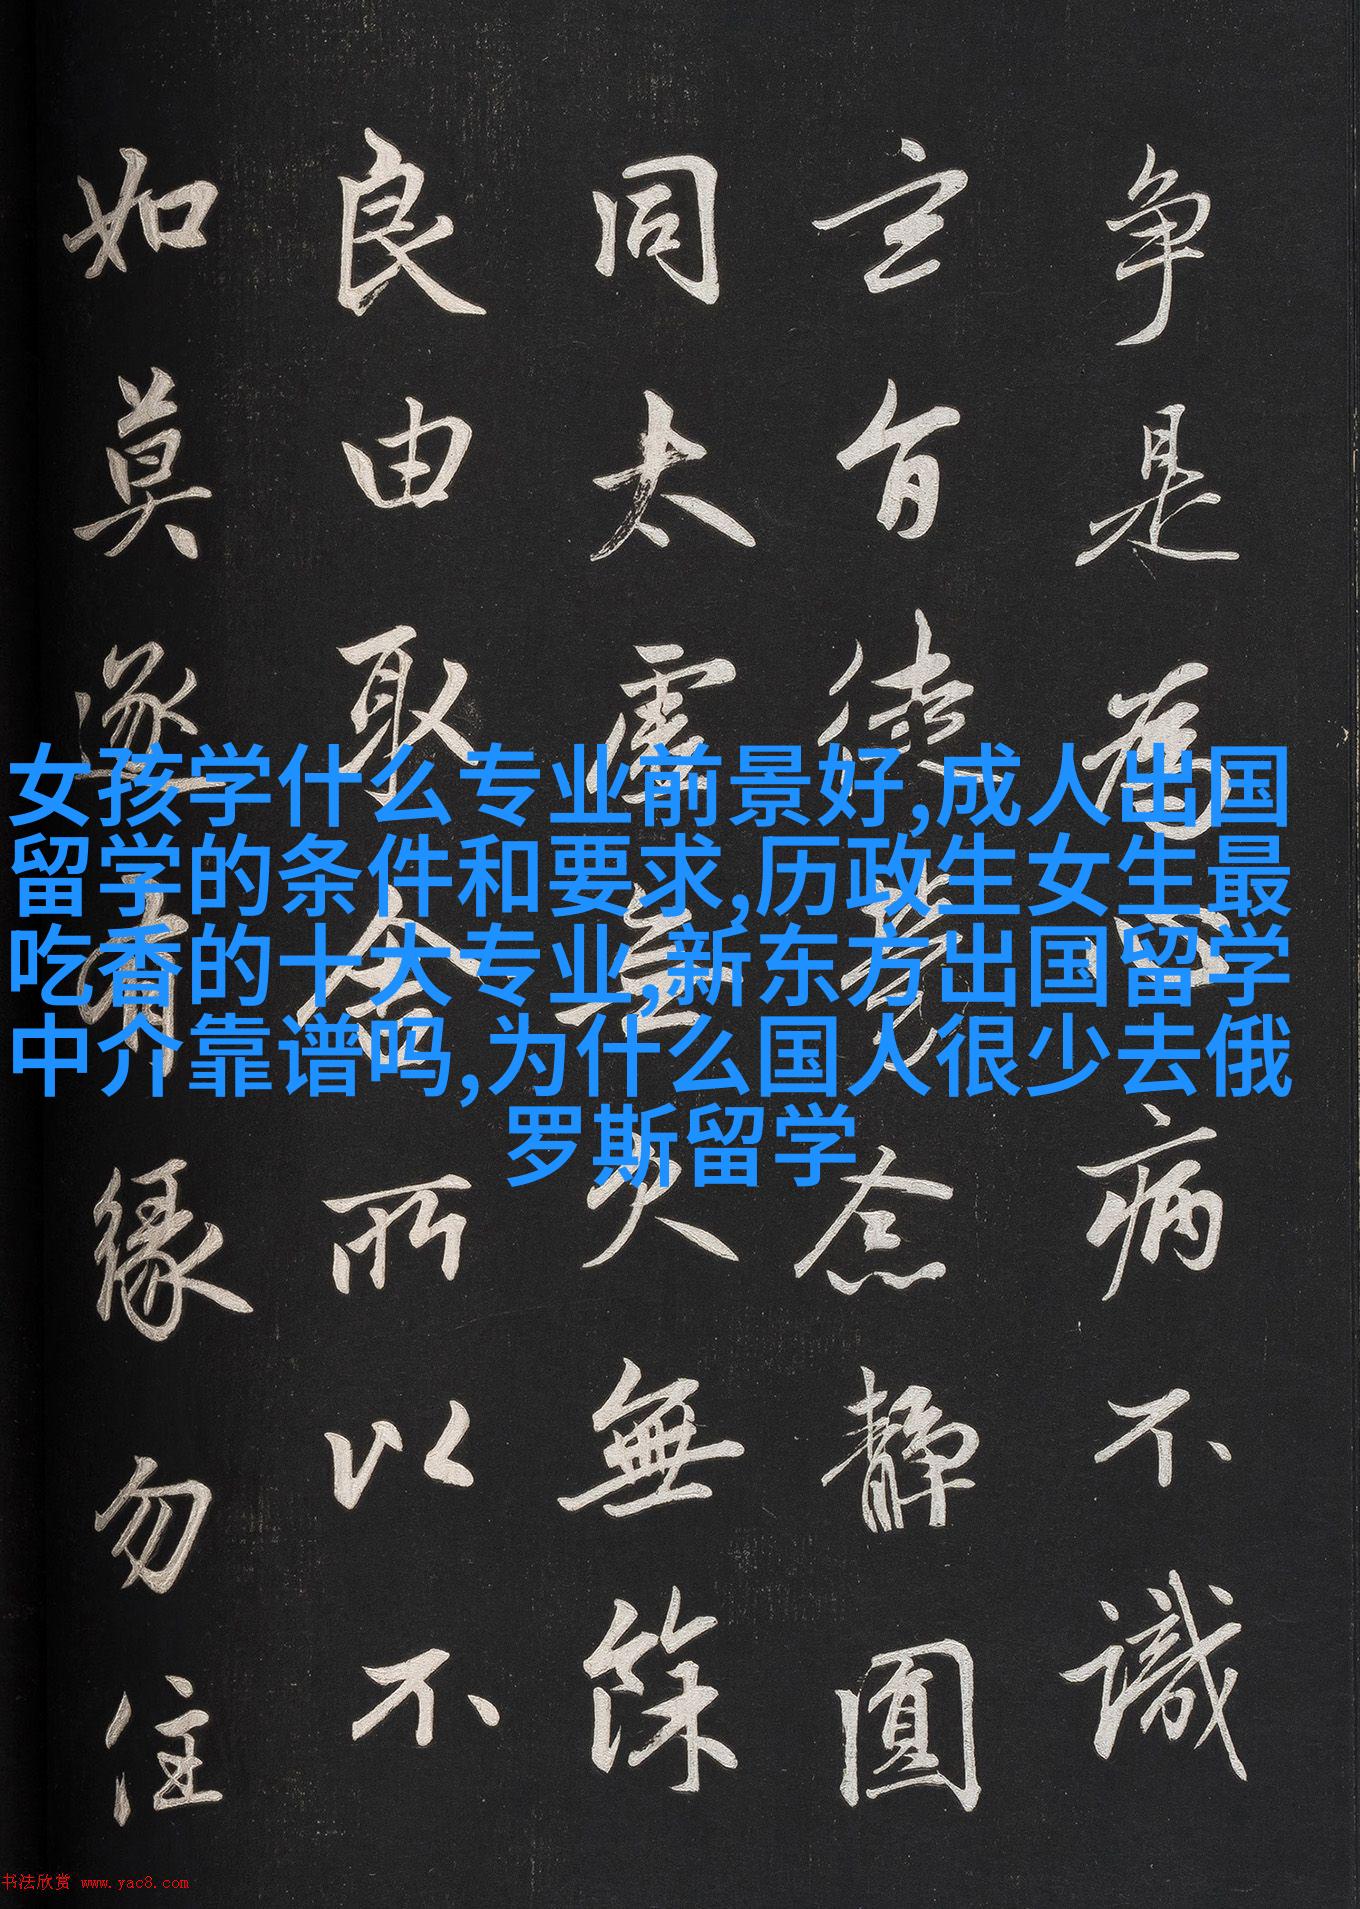 争是為心病不識
玄旨徒勞念静圓
同太虚無欠無餘
良由取舍所以不
如莫逐有緣勿住
女孩学什么专业前景好,成人出国
留学的条件和要求,历政生女生最
吃香的十大专业,新东方出国留学
中介靠谱吗,为什么国人很少去俄
罗斯留学
书法欣赏 www.yac8.com